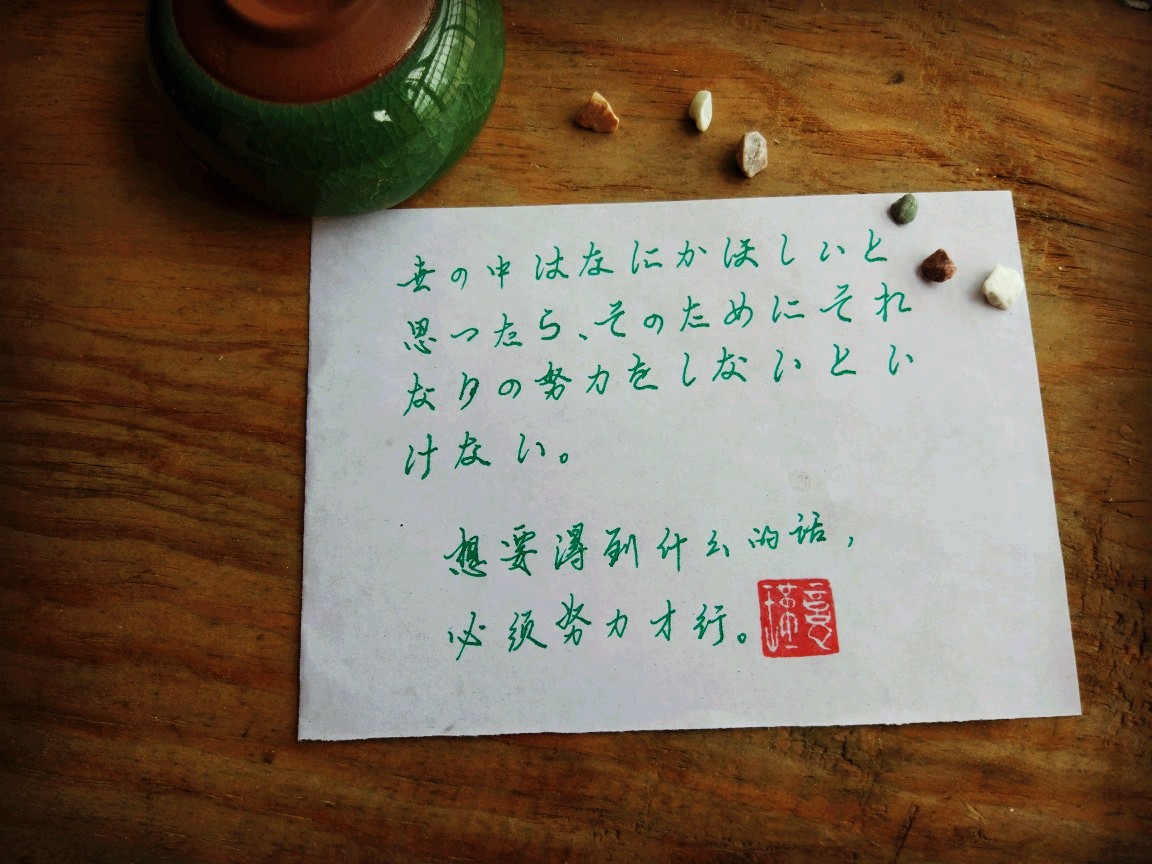 世の中はなにかほしいと
思ったら、そのためにそれ
なりの努力をしないとい
けない。
想要得到什么的话，
必须努力才行。